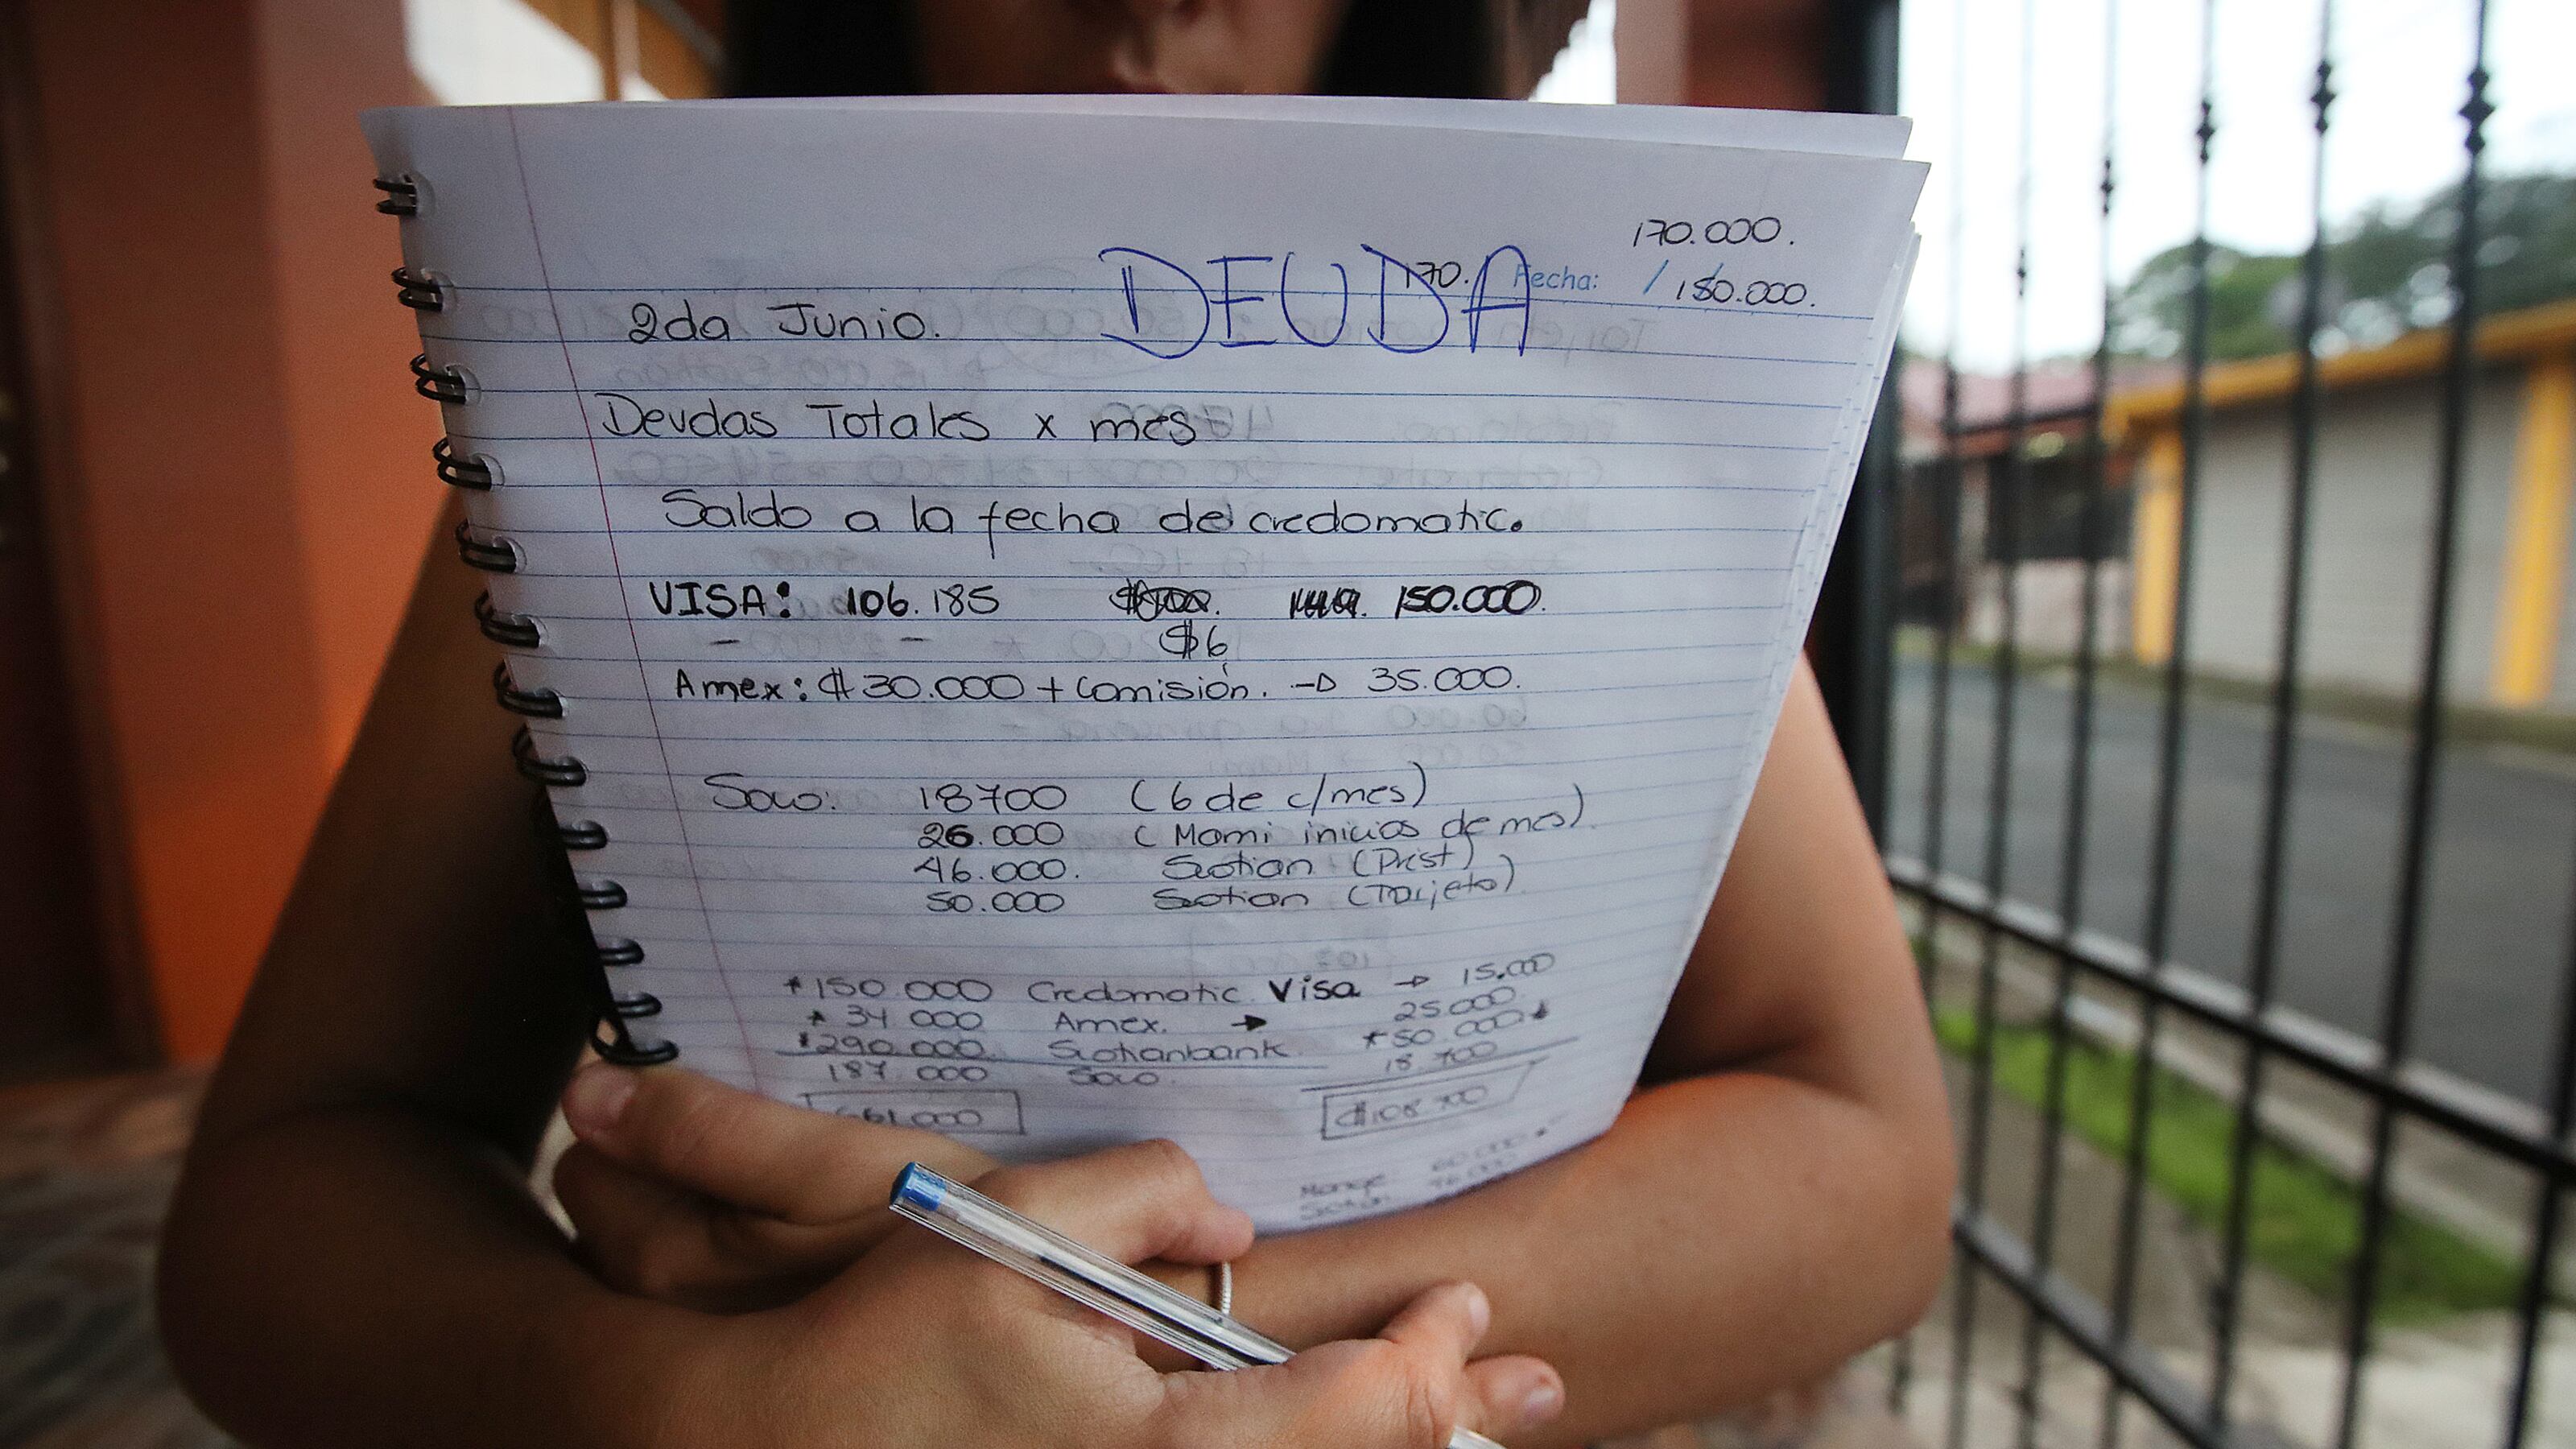 170.000.
DEUDA 170. Fecha: / / 150.000.
2da Junio.
Deudas Totales x mes
Saldo a la fecha de credomatic.
VISA: 106.185 150.000.
$6
Amex: ₡ 30.000 + comisión. → 35.000.
Solo: 18700 (6 de c/mes)
26.000 (Mami inicios de mes)
46.000. Scotian (Prést)
50.000 Scotian (Tarjeta)
+150.000 Credomatic Visa → 15.000
+ 34 000 Amex. → 25.000
+290.000 Scotianbank +50.000
187 000 Solo. 18.700
661.000 ₡108 700
Monge 60.000
Scotian